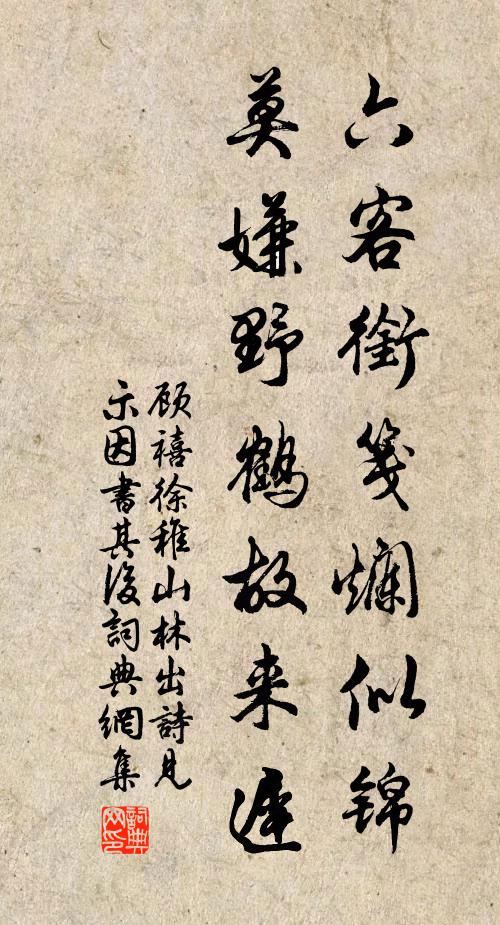 六客衔笺爛似锦
莫嫌野鶴故来遲
顾禧徐稚山林出詩見
示因書其後詞典網集
詞典
网印